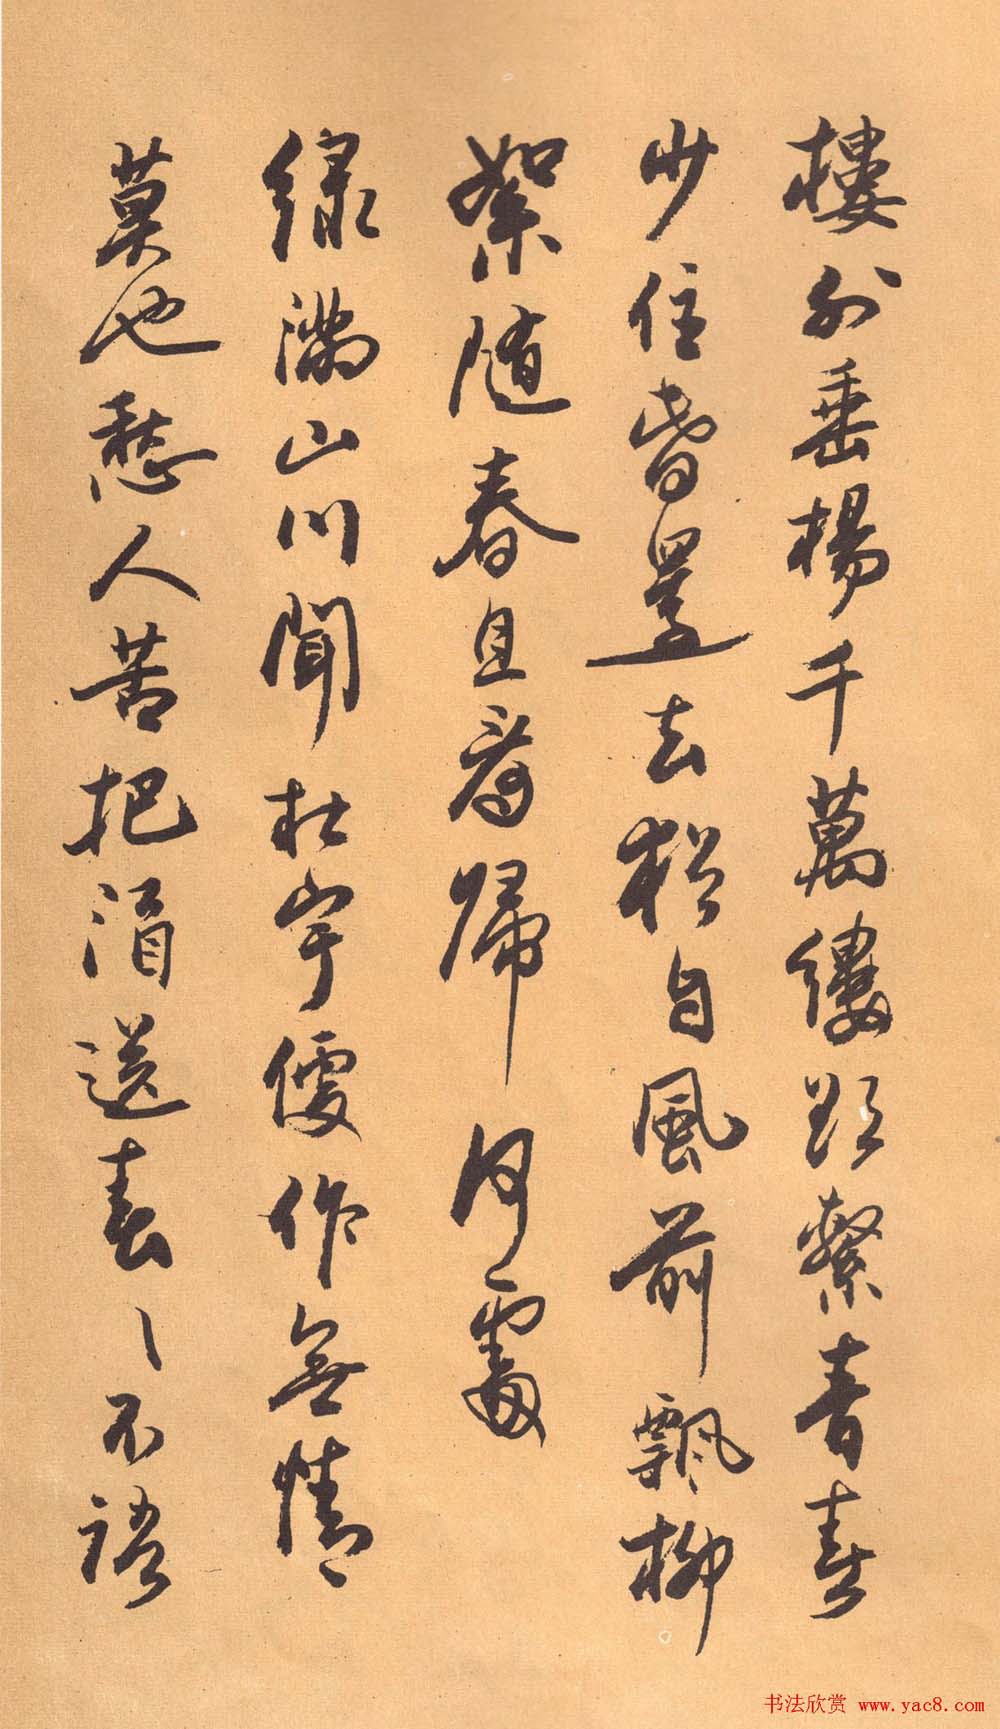 樓外垂楊千萬縷欲繫青春
少住春還去猶自風前飄柳
絮隨春且看歸何處
綠滿山川聞杜宇便作無情
莫也愁人苦把酒送春〻不語
书法欣赏 www.yac8.com